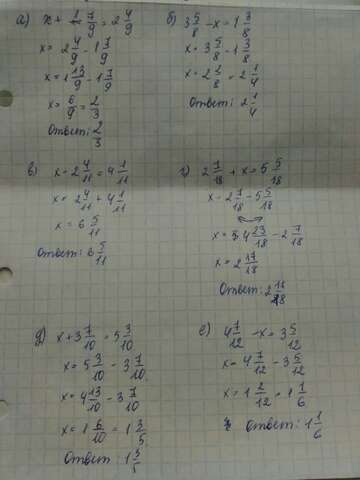 а) x + 1 7/9 = 2 4/9
x = 2 4/9 - 1 7/9
x = 1 13/9 - 1 7/9
x = 6/9 = 2/3
Ответ: 2/3
б) 3 5/8 - x = 1 3/8
x = 3 5/8 - 1 3/8
x = 2 2/8 = 2 1/4
Ответ: 2 1/4
в) x - 2 4/11 = 4 1/11
x = 2 4/11 + 4 1/11
x = 6 5/11
Ответ: 6 5/11
г) 2 7/18 + x = 5 5/18
x - 2 7/18 - 5 5/18
x = 4 23/18 - 2 7/18
x = 2 17/18
Ответ: 2
д) x + 3 7/10 = 5 3/10
x = 5 3/10 - 3 7/10
x = 4 13/10 - 3 7/10
x = 1 6/10 = 1 3/5
Ответ 1 3/5
е) 4 7/12 - x = 3 5/12
x = 4 7/12 - 3 5/12
x = 1 2/12 = 1 1/6
Ответ: 1 1/6